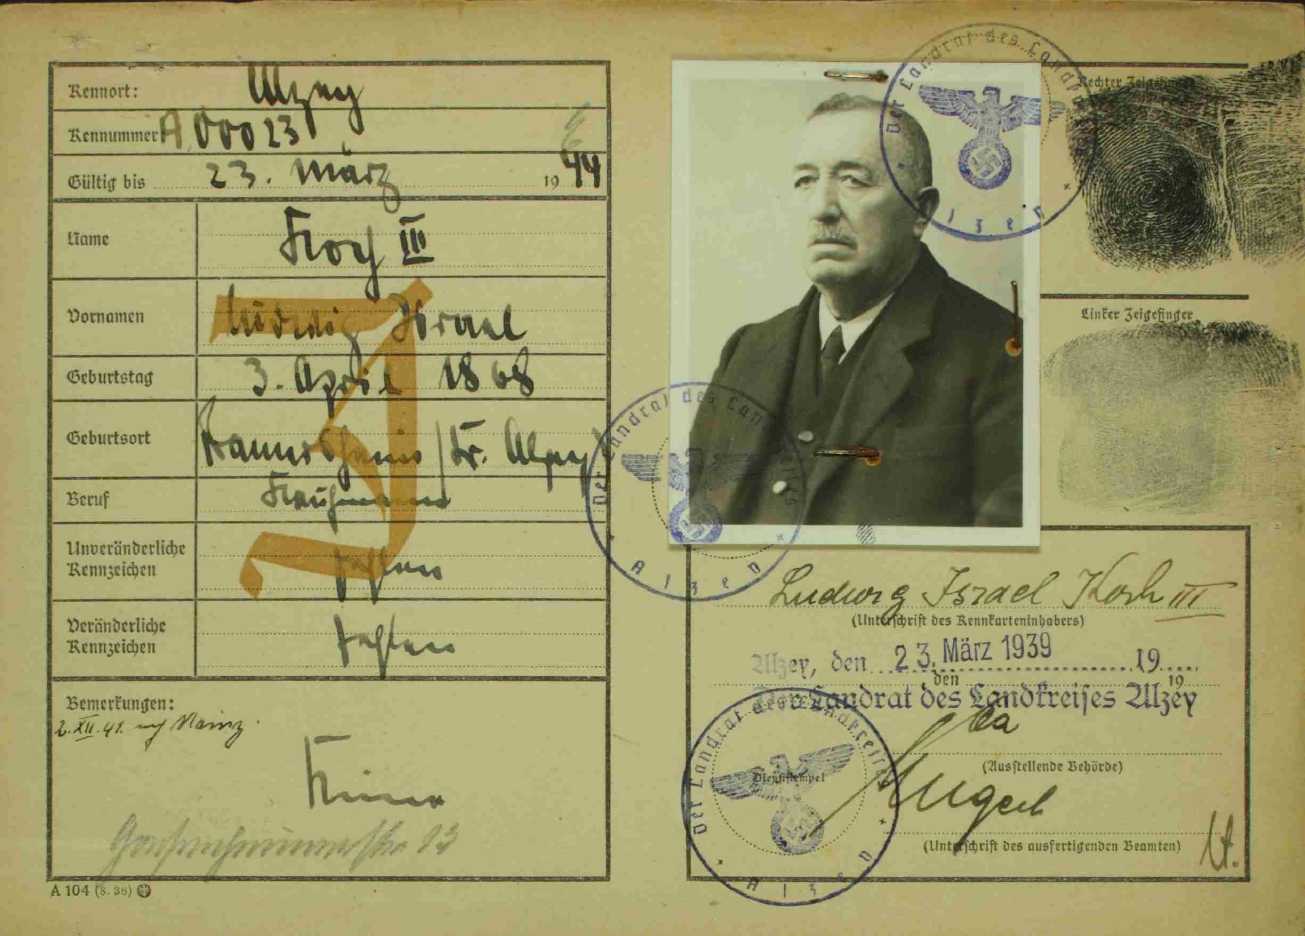 Kennort: Alzey
Kennummer A 00023
Gültig bis 23. März 1944
Name Koch III
Vornamen Ludwig Israel
Geburtstag 3. April 1868
Geburtsort Framersheim/Kr. Alzey
Beruf Kaufmann
Unveränderliche
Kennzeichen fehlen
Veränderliche
Kennzeichen fehlen
Bemerkungen:
2. XII. 41. Mainz.
Keine
13
A 104 (8. 38)
J
Der Landrat des Landkreises
Alzey
Rechter Zeigefinger
Linker Zeigefinger
Der Landrat des Landkreises
Alzey
Ludwig Israel Koch III
(Unterschrift des Kennkarteninhabers)
Alzey, den 23. März 1939 19
den 19
Der Landrat des Landkreises Alzey
(Ausstellende Behörde)
(Unterschrift des ausfertigenden Beamten)
Der Landrat des Landkreises
Dienststempel
Alzey